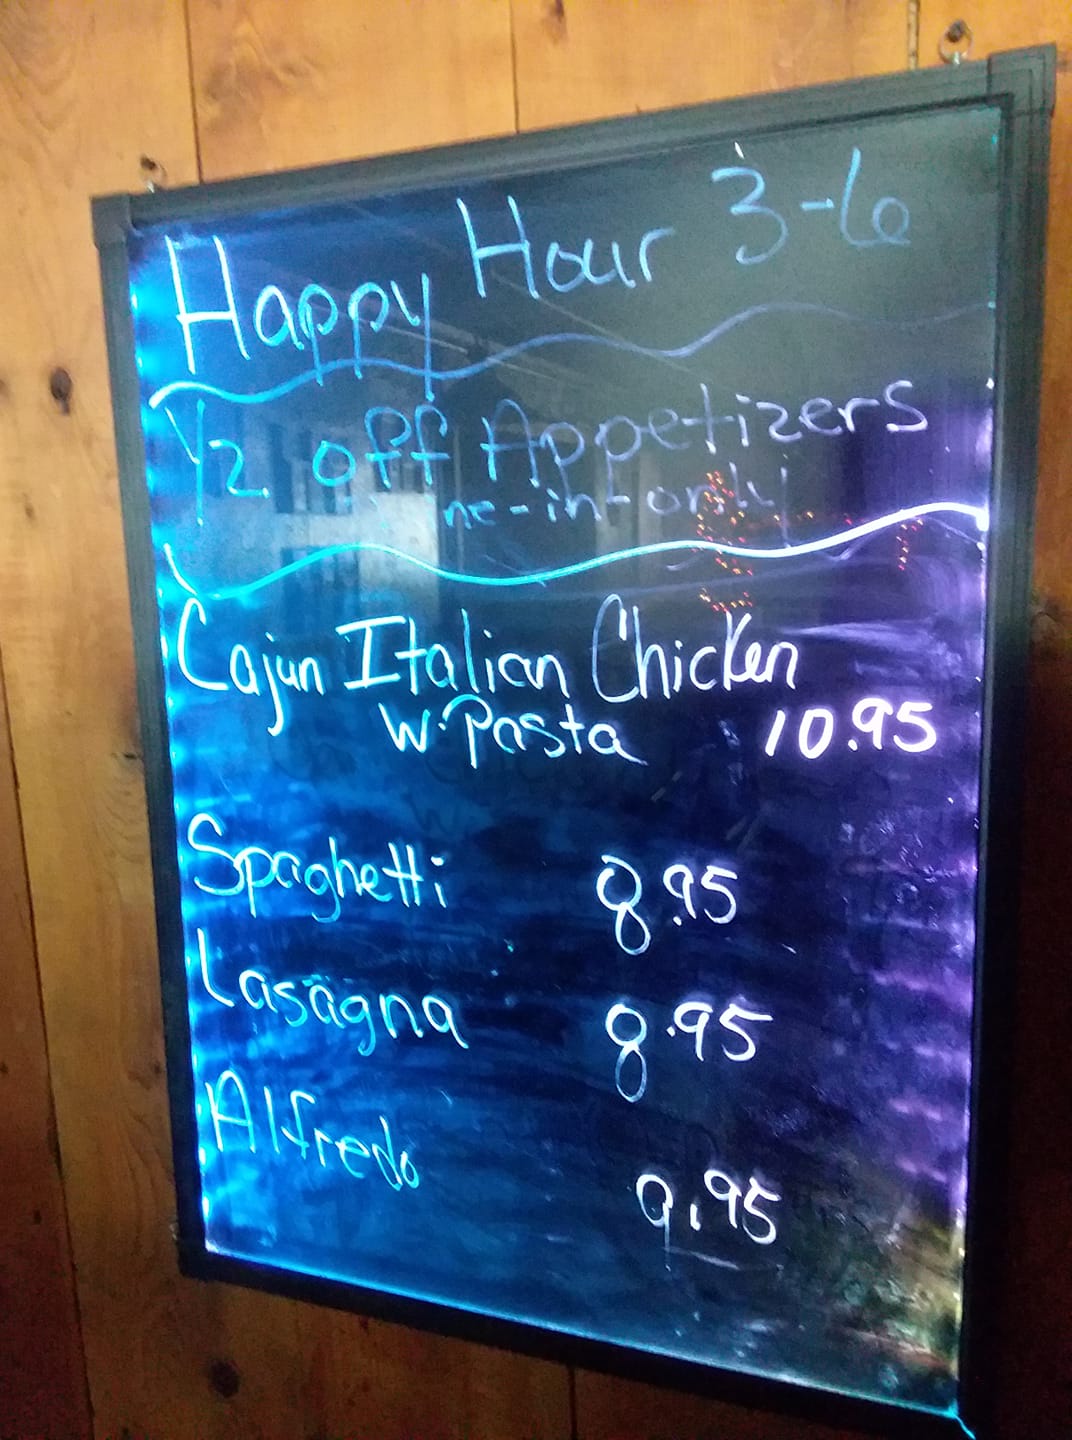 Happy Hour 3-6
1/2 off Appetizers
ne-in- only
Cajun Italian Chicken
W. Pasta 10.95
Spaghetti 8.95
Lasagna 8.95
Alfredo 9.95